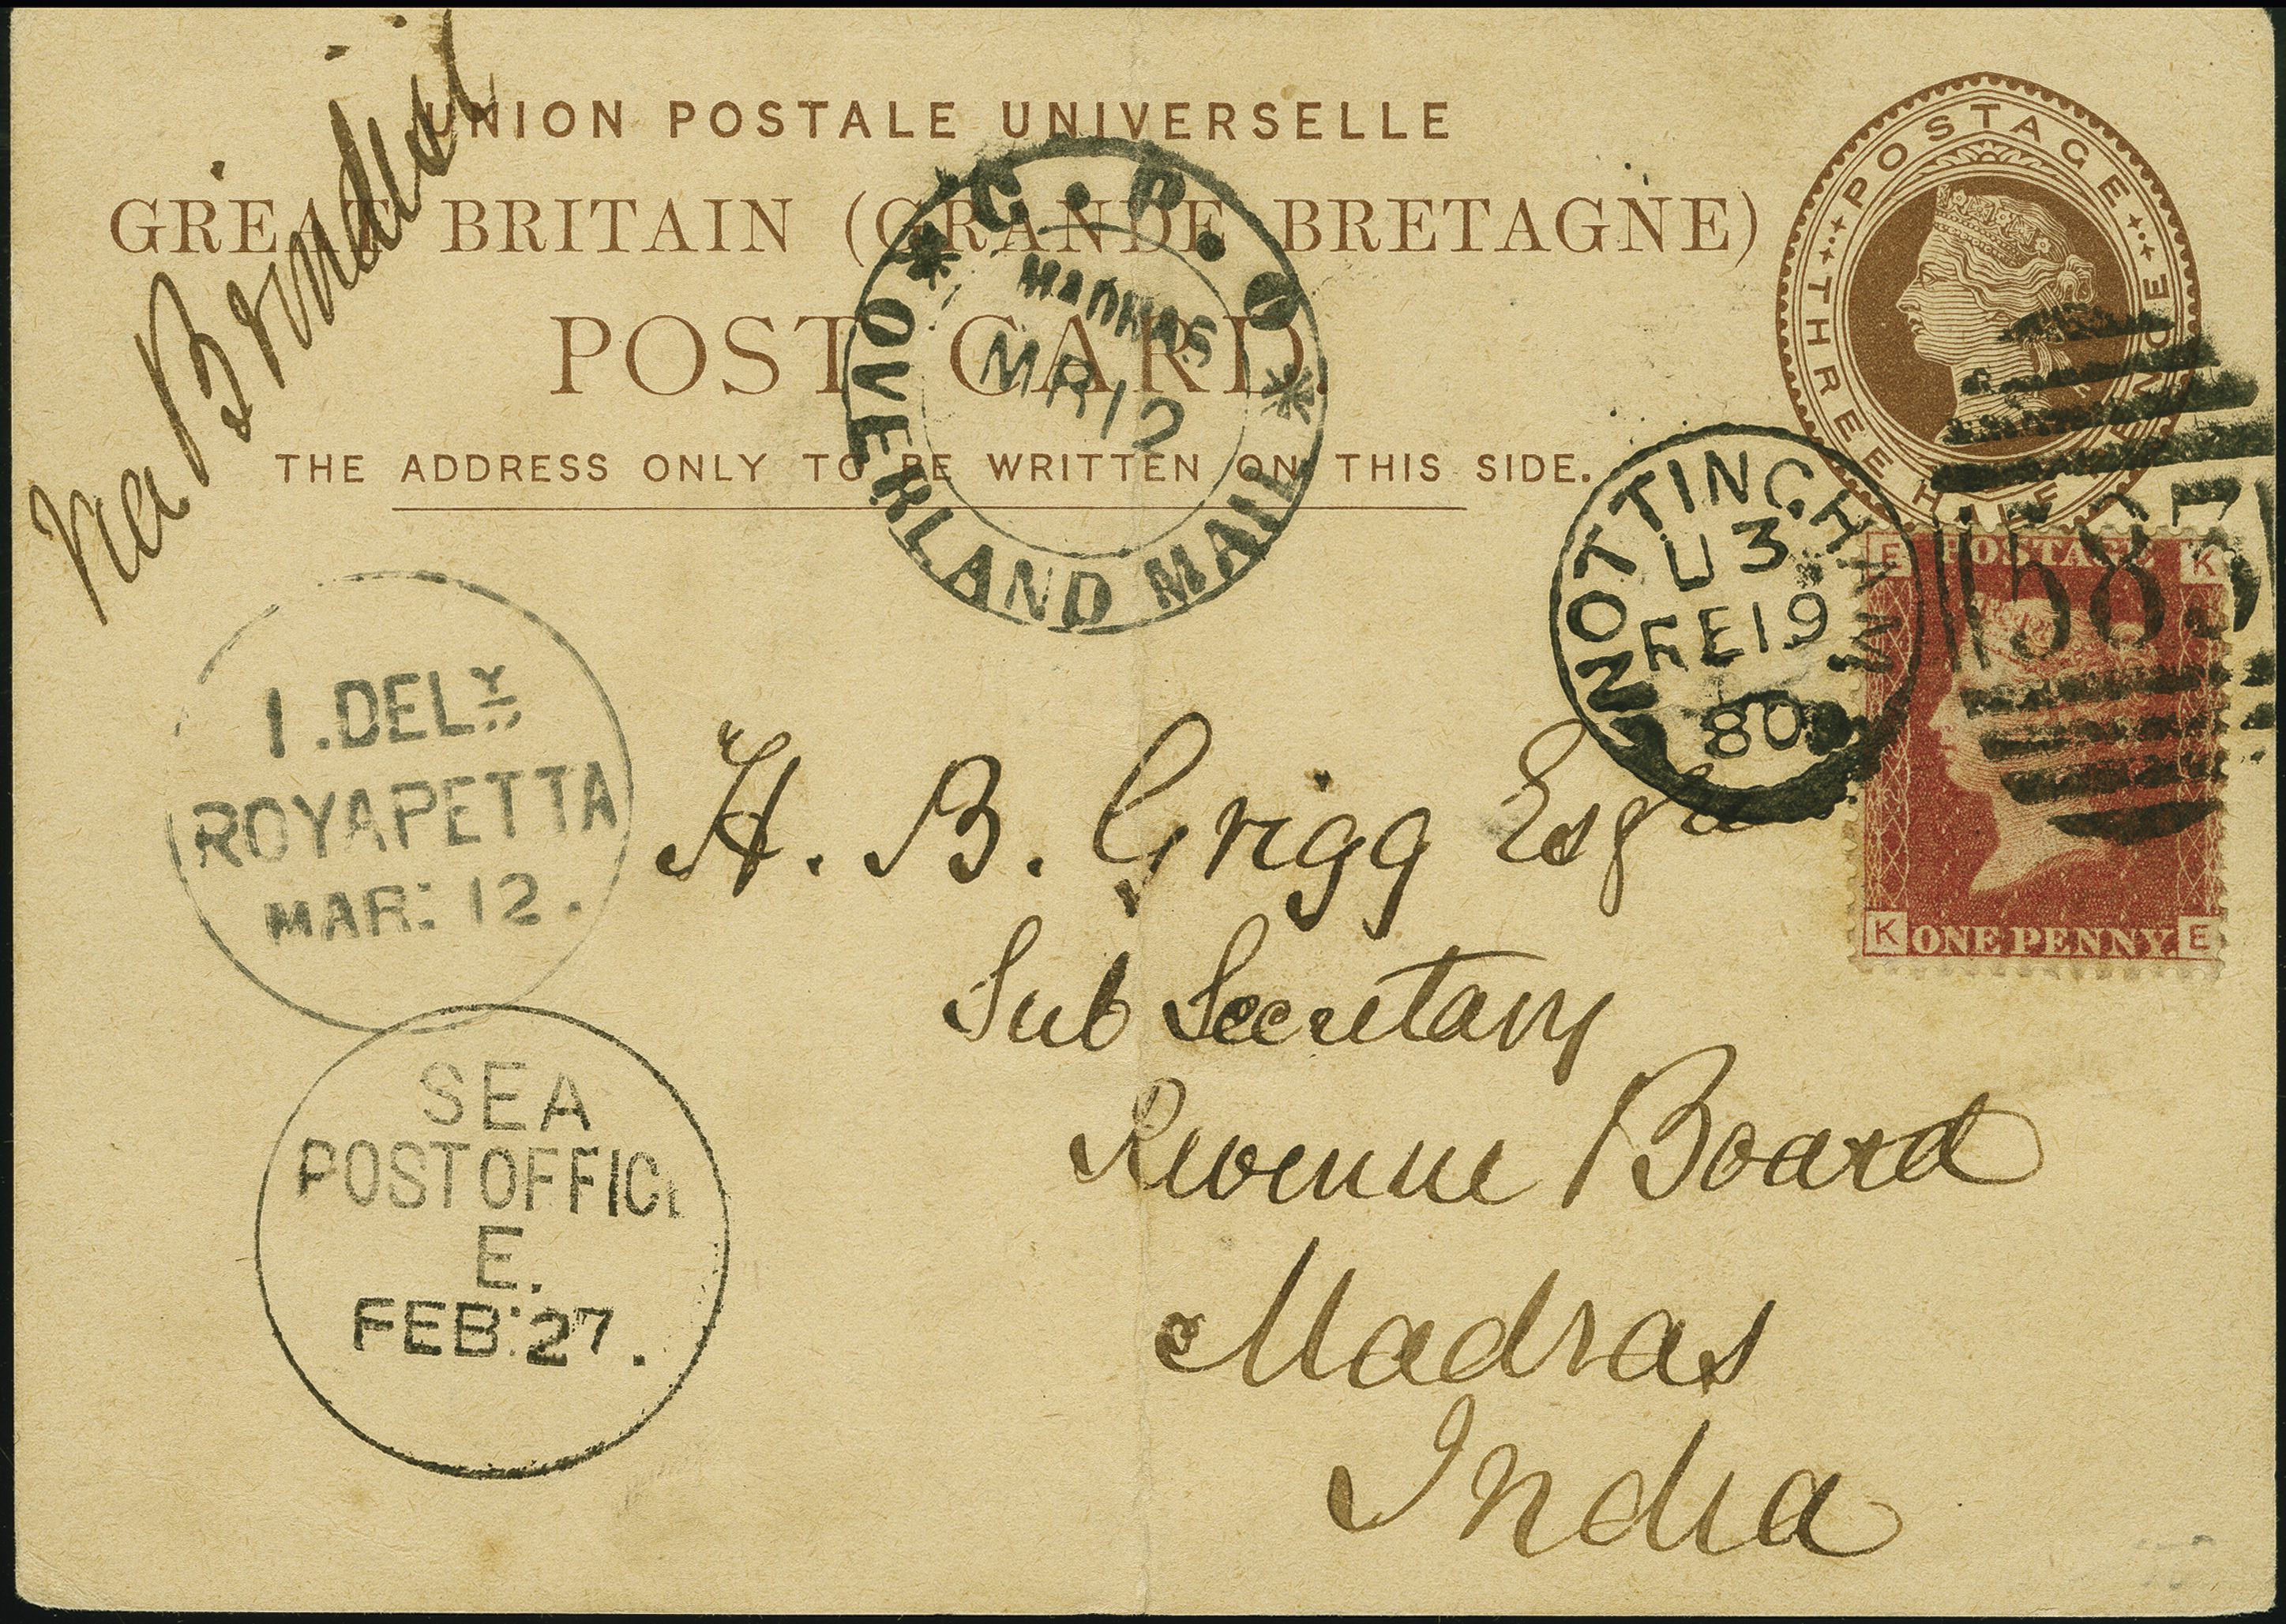 via Brindisi
UNION POSTALE UNIVERSELLE
GREAT BRITAIN (GRANDE BRETAGNE)
POST CARD.
THE ADDRESS ONLY TO BE WRITTEN ON THIS SIDE.
POSTAGE
THREE HALFPENCE
G.P.O.
MADRAS
MR 12
OVERLAND MAIL
NOTTINGHAM
U 3
FE 19
80
583
E POSTAGE K
K ONE PENNY. E
1. DELY
ROYAPETTA
MAR: 12.
H. B. Grigg Esq
Sub Secretary
Revenue Board
Madras
India
SEA
POST OFFICE
E.
FEB: 27.